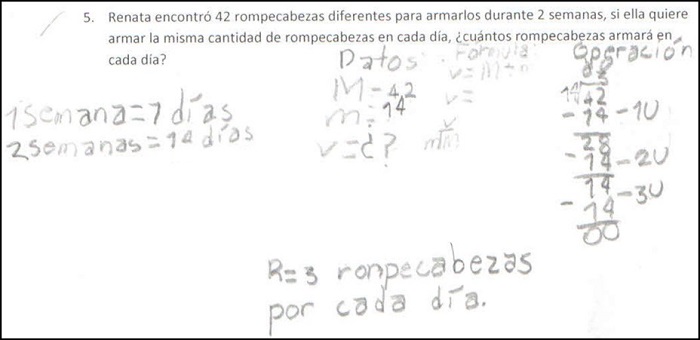 5. Renata encontró 42 rompecabezas diferentes para armarlos durante 2 semanas, si ella quiere
armar la misma cantidad de rompecabezas en cada día, ¿cuántos rompecabezas armará en
cada día?
1 semana = 7 días
2 semanas = 14 días
Datos
M = 42
m = 14
v = ¿?
Formula
v = M ÷ m
v =
Operación
03
14 42
- 14 - 1U
28
- 14 - 2U
14
- 14 - 3U
00
R = 3 ronpecabezas
por cada día.